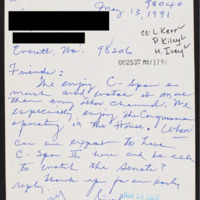 98040
May 13, 1991
cc: L Kerr
P. Kiley
M. Ivey
Everett, Wa. 98206
002537 MAY17 91
Friends:
We enjoy C-Span as
much and watch it more
than any other channel. We
especially enjoy the Congressmen
in the House. When
can we expect to have
C-Span II here and be able
to watch the Senate?
Thank you for an early
reply.